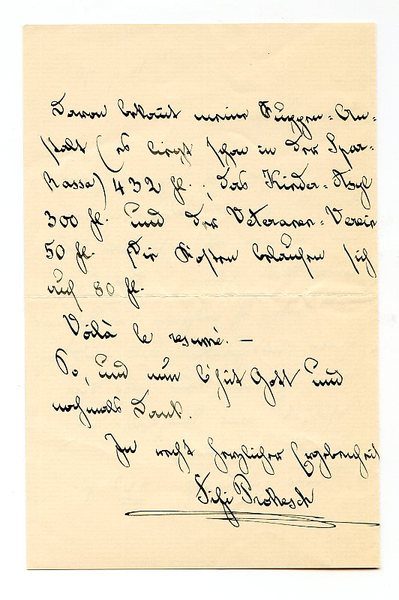 Davon bekommt meine Suppen-An-
stalt (es liegt schon in der Spar-
kassa) 432 fl., das Kinder-Asyl
300 fl. und der Veteranen-Verein
50 fl. Die Kosten belaufen sich
auf 80 fl.
Voilà le resumé. —
So, und nun b'hüt Gott und
nochmals Dank.
In recht herzlicher Ergebenheit
Prokesch